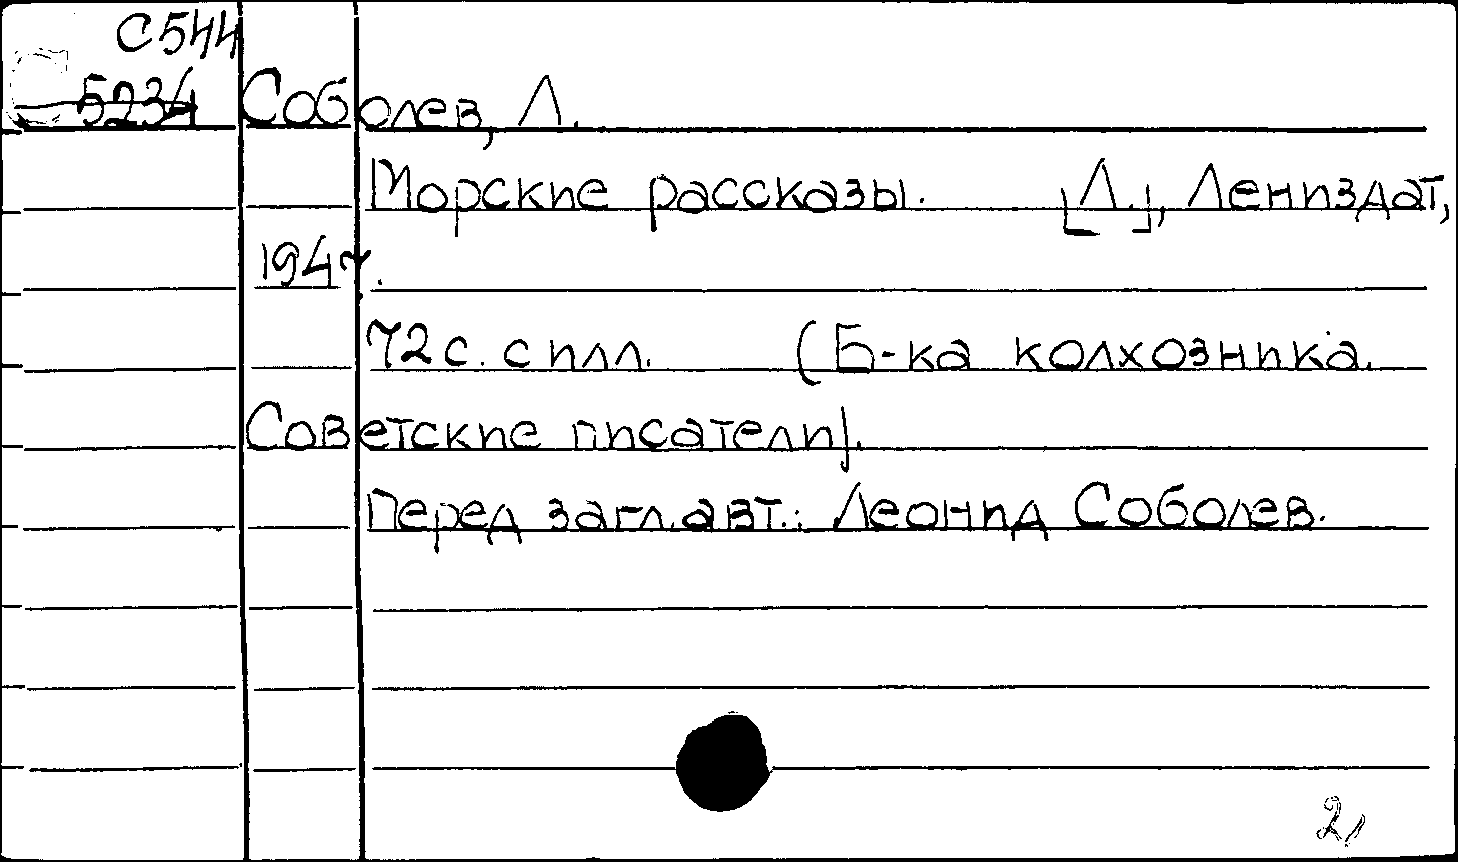 С544
5234
Соболев, Л.
Морские рассказы. [Л.], Лениздат,
1947.
72 с. с илл. (Б-ка колхозника.
Советские писатели).
Перед загл. авт.: Леонид Соболев.
2,